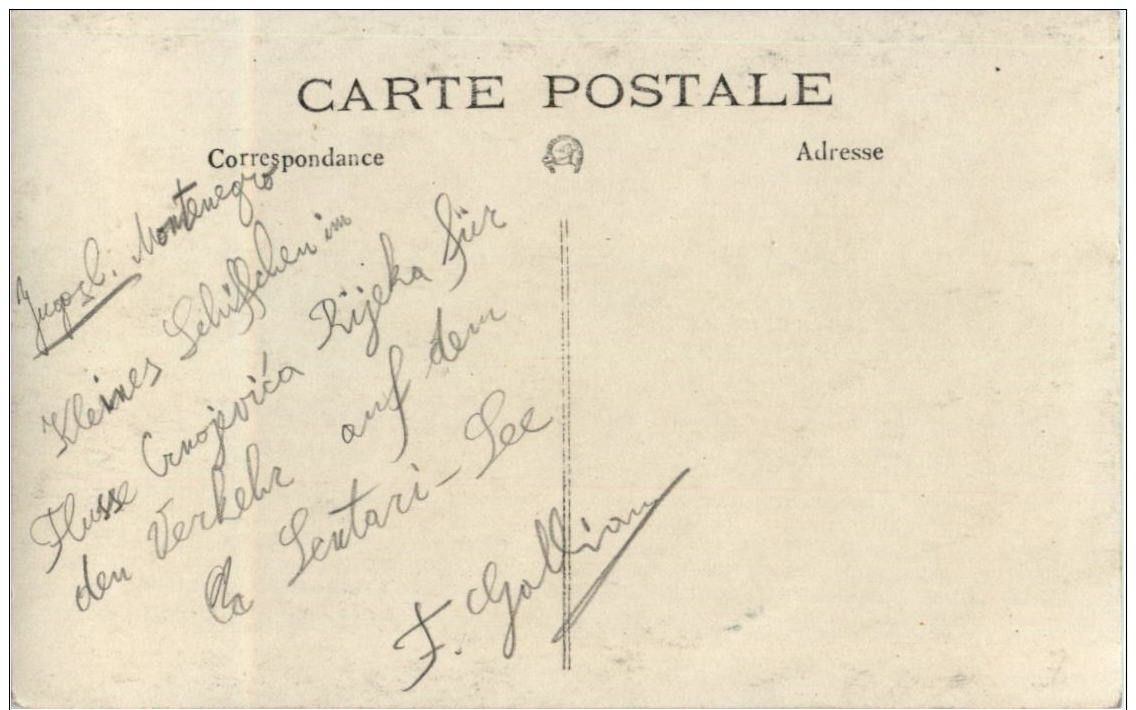 CARTE POSTALE
Correspondance
Adresse
Jugosl. Montenegro
Kleines Schiffchen im
Flusse Crnojevića Rijeka für
den Verkehr auf dem
Scutari-See
F.